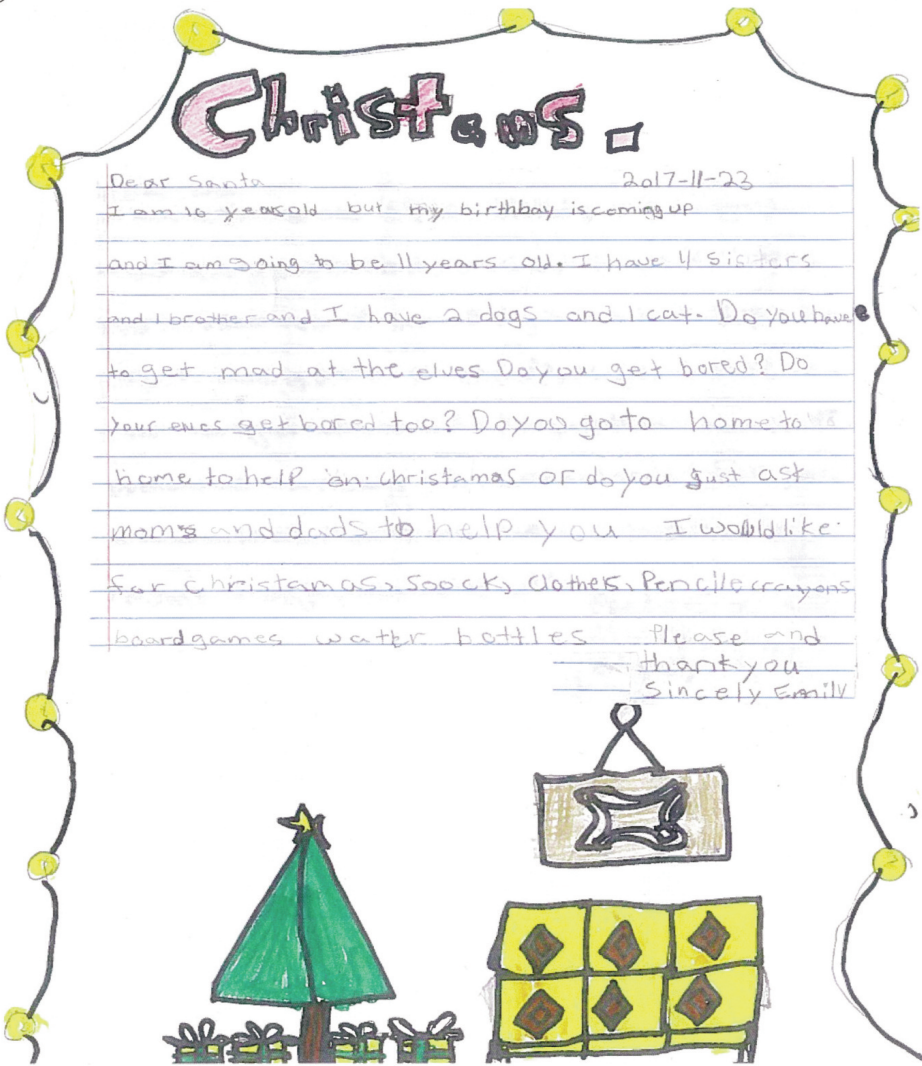 Christams.
Dear Santa 2017-11-23
I am 10 yearsold but my birthbay is coming up
and I am going to be 11 years old. I have 4 Sisters
and 1 brother and I have 2 dogs and 1 cat. Do you have
to get mad at the elves Do you get bored? Do
your elves get bored too? Do you go to home to
home to help on christamas or do you just ask
moms and dads to help you I would like
for christamas, Soock, Clothes, Pencile crayons
boardgames water bottles Please and
thank you
Sincely Emily